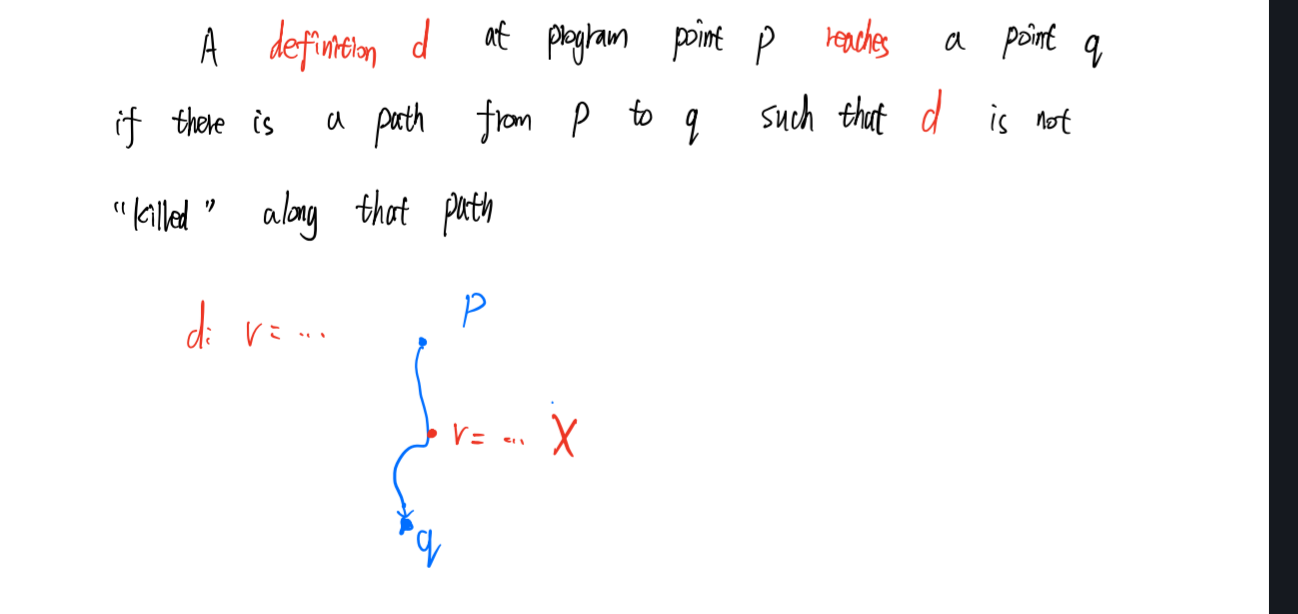 A definition d at program point p reaches a point q
if there is a path from p to q such that d is not
"killed" along that path
P
d: v = ...
v = ... X
q